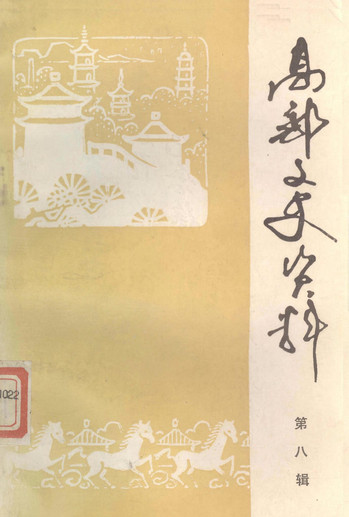 高郵文史资料
第八辑
1022